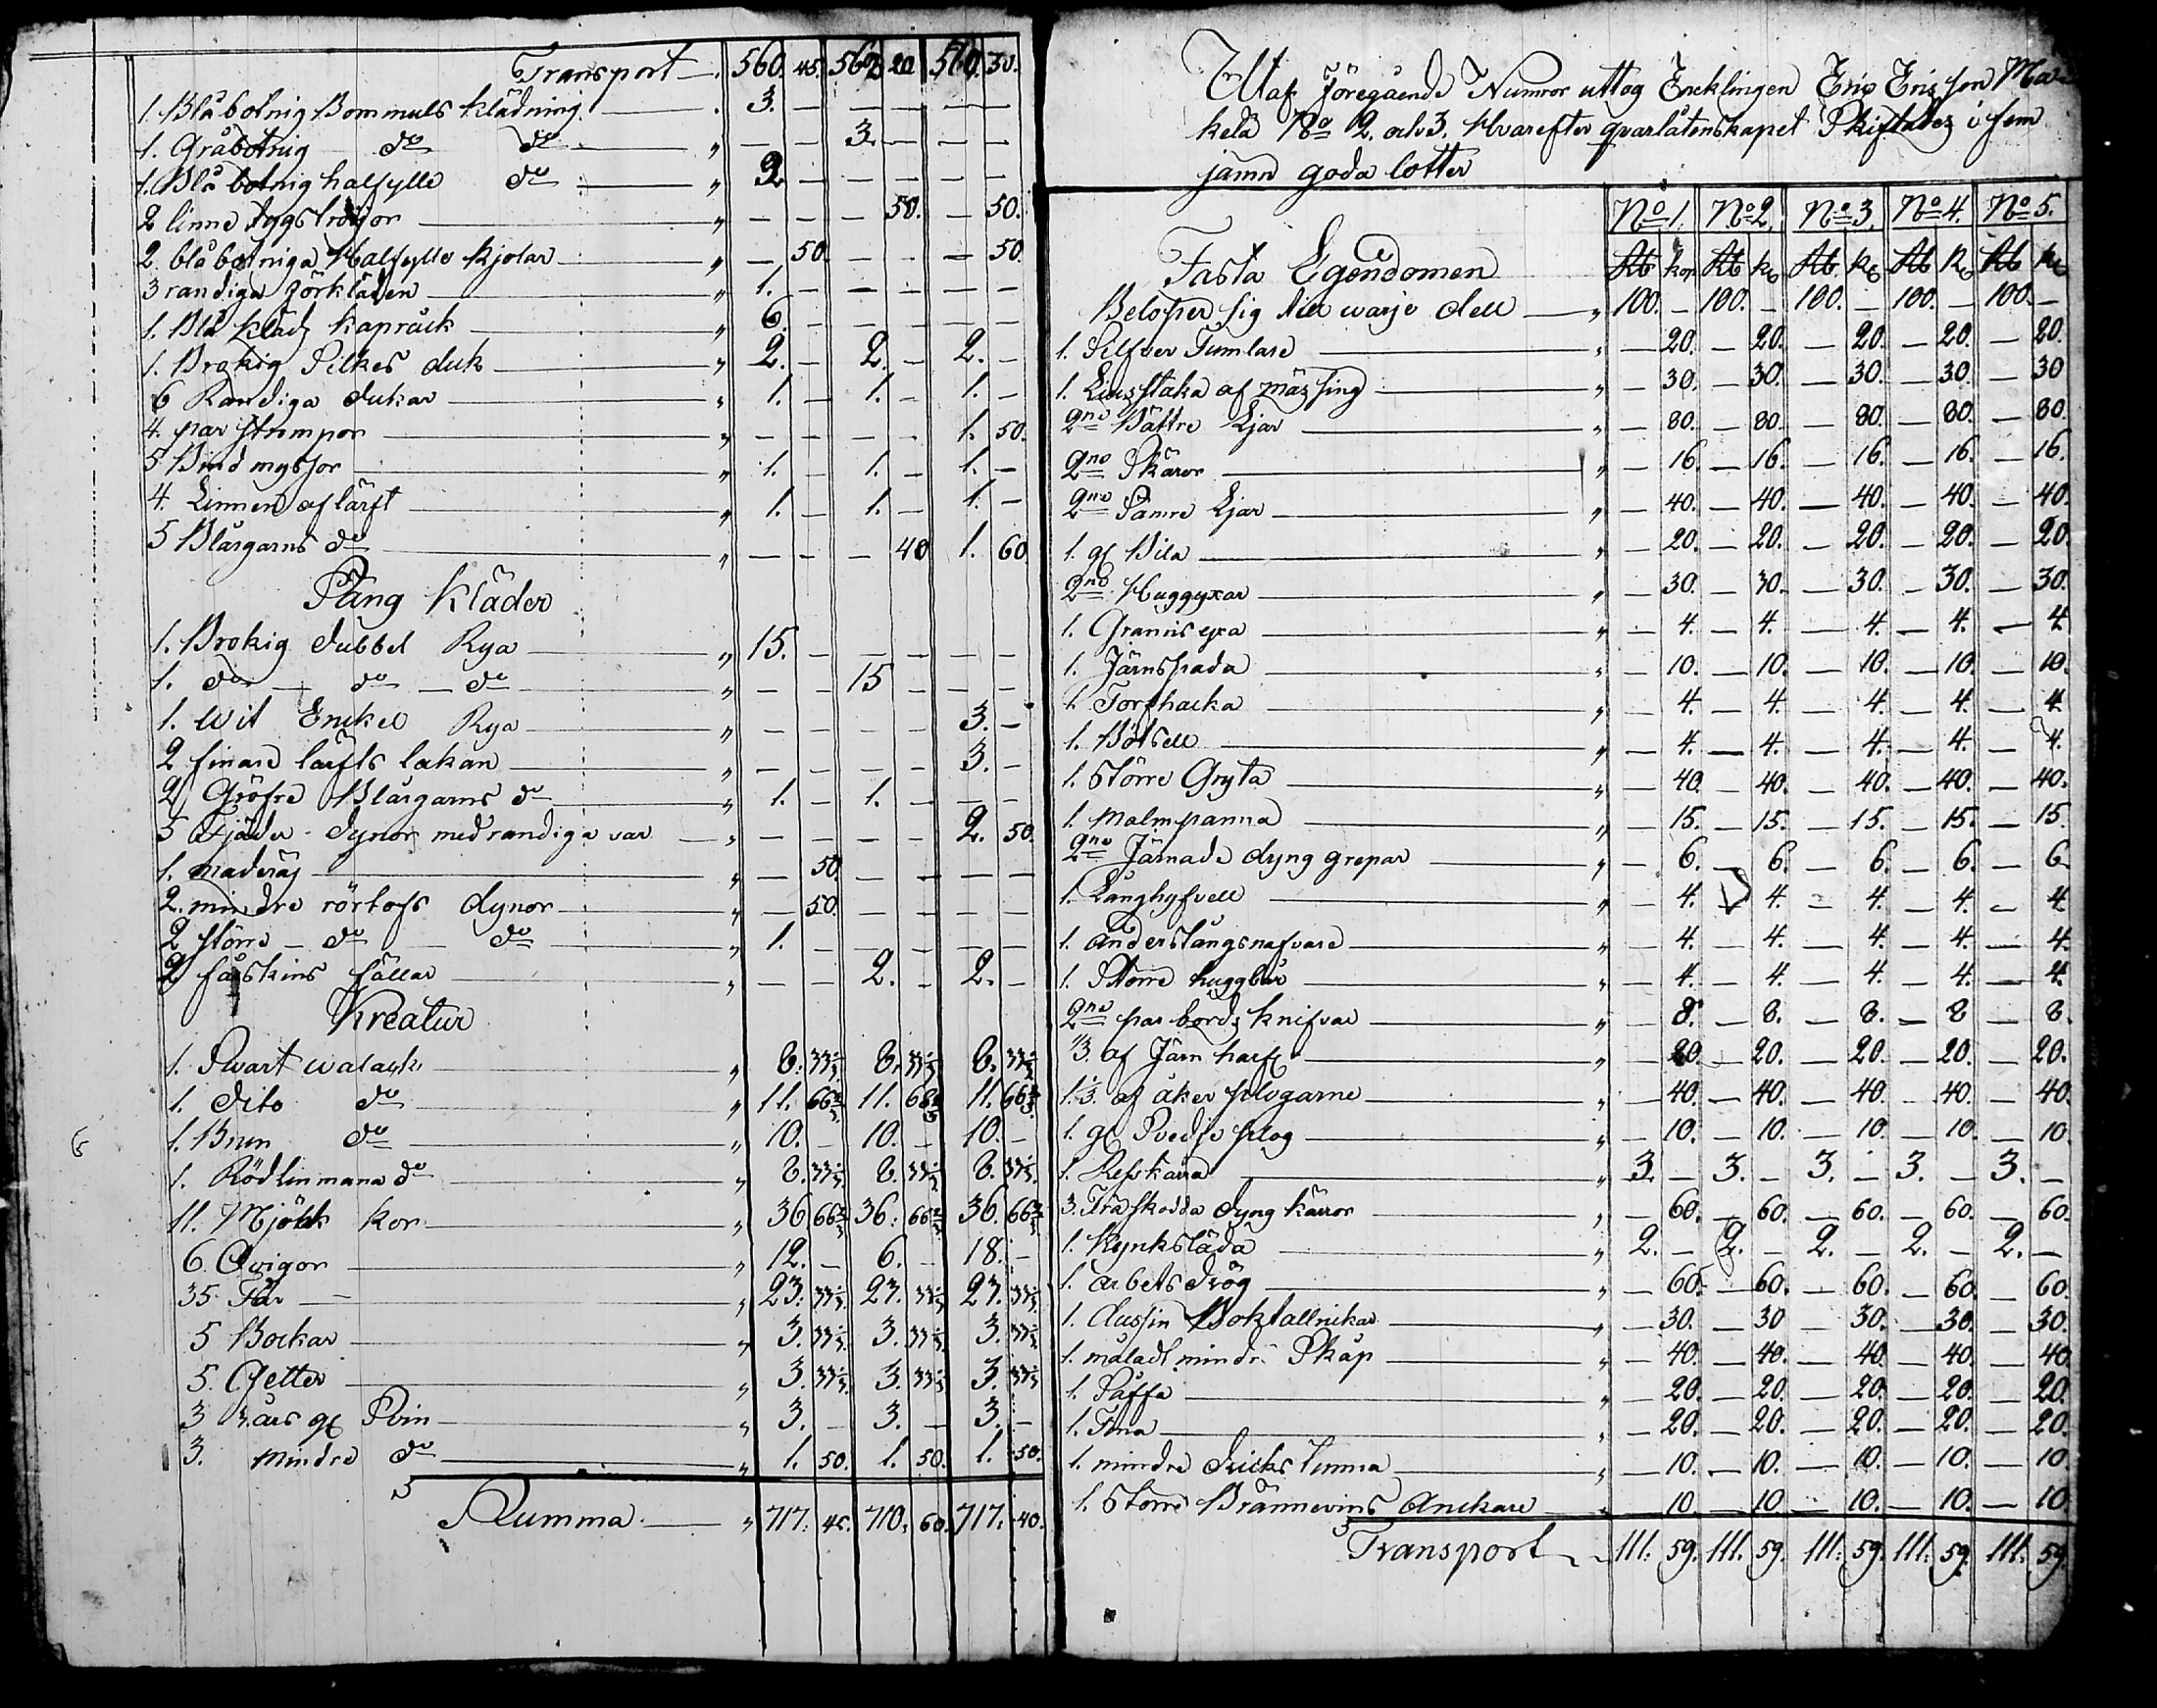 Transport 560. 45. 562 20 560. 30.
1. Blåbotnig Bommuls klädning 3. — — — — —
1. Gråbotnig do do — — 3. — — —
1. Blåbotnig halfylle do 3. — — — — —
2 linne tygströijor — — — 50. — 50.
2. blåbotniga Halfylle kjolar — 50. — — — 50.
3 randiga förkläden 1. — — — — —
1. Blå kläd kapråck 6. — — — — —
1. Brokig Silkes duk 2. — 2. — 2. —
6 Randiga dukar 1. — 1. — 1. —
4. par strumpor — — — — 1. 50.
5 Bindmyssor 1. — 1. — 1. —
4. Linnen af lärft 1. — 1. — 1. —
5 Blårgarns do — — — 40 1. 60
Säng Kläder
1. Brokig dubbel Rya 15. — — — — —
1. do — do — do — — 15 — — —
1. Wit Enkel Rya — — — — 3. —
2 finare lärfts lakan — — — — 3. —
2 Gröfre Blårgarns do 1. — 1. — — —
5 Fjäder dynor med randiga var — — — — 2. 50.
1. maderas — 50. — — — —
2. mindre rörtofs dynor — 50. — — — —
2 större — do — do 1. — — — — —
2 fårskins fällar — — 2. — 2. —
Kreatur
1. Svart walack 8. 33⅓ 8. 33⅓ 8. 33⅓
1. dito do 11. 66⅔ 11. 66⅔ 11. 66⅔
1. Brun do 10. — 10. — 10. —
1. Rödlinmana do 8. 33⅓ 8. 33⅓ 8. 33⅓
11. Mjölk kor 36 66⅔ 36. 66⅔ 36. 66⅔
6. Qvigor 12. — 6. — 18. —
35 Får 23. 33⅓ 23. 33⅓ 23. 33⅓
5 Bockar 3. 33⅓ 3. 33⅓ 3. 33⅓
5. Getter 3. 33⅓ 3. 33⅓ 3. 33⅓
3 års gl Svin 3. — 3. — 3. —
3. mindre do 1. 50. 1. 50. 1. 50.
Summa 717. 45. 710. 60. 717. 40.
Utaf föregående Numror uttog Encklingen Eric Ericsson Mas
kela No 2. och 3. Hvarefter qvarlåtenskapet Skiftades i fem
jämn goda lotter
No 1. No 2. No 3. No 4. No 5.
Fasta Egendomen Rb kop Rb kc Rb kc Rb kc Rb kc
Beloper sig till warje dell 100. — 100. — 100. — 100. — 100. —
1. Silfver Tumlare — 20. — 20. — 20. — 20. — 20.
1. Liusstaka af mässing — 30. — 30. — 30. — 30. — 30
2ne Bättre Ljar — 80. — 80. — 80. — 80. — 80.
2ne Skäror — 16. — 16. — 16. — 16. — 16.
2ne Sämre Ljar — 40. — 40. — 40. — 40. — 40.
1. gl Bila — 20. — 20. — 20. — 20. — 20.
2ne Huggyxar — 30. — 30. — 30. — 30. — 30.
1. Grannis yxa — 4. — 4. — 4. — 4. — 4
1. Järnspada — 10. — 10. — 10. — 10. — 10.
1. Torfhacka — 4. — 4. — 4. — 4. — 4
1. Bötsell — 4. — 4. — 4. — 4. — 4.
1. Större Gryta — 40. — 40. — 40. — 40. — 40.
1. Malmpanna — 15. — 15. — 15. — 15. — 15.
2ne Järnade dyng grepar — 6. — 6. — 6. — 6. — 6
1. Långhyfvell — 4. — 4. — 4. — 4. — 4
1. anderstångsnafvare — 4. — 4. — 4. — 4. — 4
1. Större huggbär — 4. — 4. — 4. — 4. — 4
2ne par bords knifvar — 8. — 8. — 8. — 8 — 8.
1/3. af Järn harf — 20. — 20. — 20. — 20. — 20.
1.⅓. af åker plogarne — 40. — 40. — 40. — 40. — 40.
1. gl Svedje plog — 10. — 10. — 10. — 10. — 10
1. Reskärra 3. — 3. — 3. — 3. — 3. —
3. Träskodda dyng kärror — 60. — 60. — 60. — 60. — 60.
1. Rynksläda 2. — 2. — 2. — 2. — 2. —
1. arbets drög — 60. — 60. — 60. — 60. — 60.
1. dussin Boktallrickar — 30. — 30 — 30. — 30. — 30.
1. måladt mindre Skåp — 40. — 40. — 40. — 40. — 40
1. Såffa — 20. — 20. — 20. — 20. — 20.
1. Tina — 20. — 20. — 20. — 20. — 20.
1. mindre dricks tunna — 10. — 10. — 10. — 10. — 10
1. Större Brännevins Anckare — 10 — 10 — 10. — 10. — 10
Transport 111. 59. 111. 59. 111. 59. 111. 59. 111. 59.